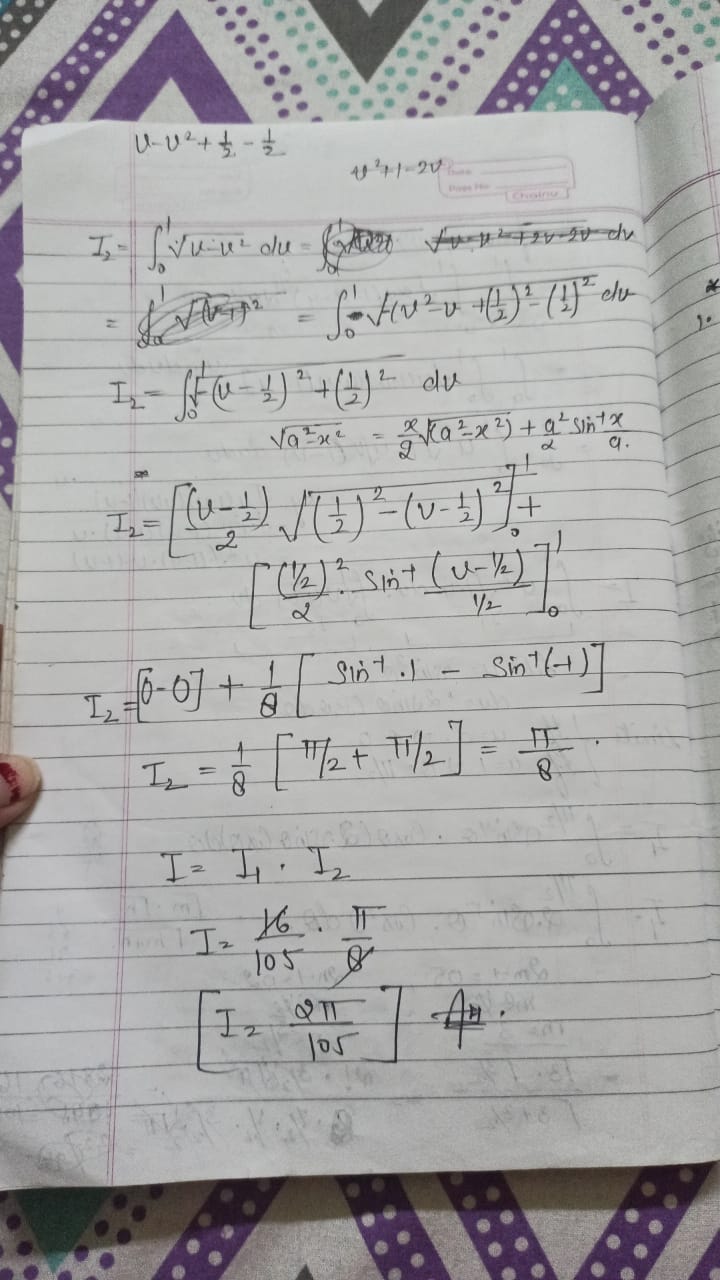 u-u²+½-½
u²+1-2u
Date
Page No.
I₂= ∫₀¹ √u-u² du = √u-u²+2u-2u du
= = ∫₀¹ √-(u²-u+(½)²-(½)² du
I₂= ∫₀¹ √-(u-½)²+(½)² du
√a²-x² = x/2 √(a²-x²) + a²/2 sin⁻¹ x/a.
I₂= [(u-½)/2 √(½)²-(u-½)²]₀¹ +
[(½)²/2 . sin⁻¹ (u-½)/½]₀¹
I₂= [0-0] + 1/8 [ sin⁻¹.1 - sin⁻¹(-1)]
I₂ = 1/8 [π/2 + π/2] = π/8 .
I = I₁ . I₂
I = 16/105 . π/8
[I = 2π/105]